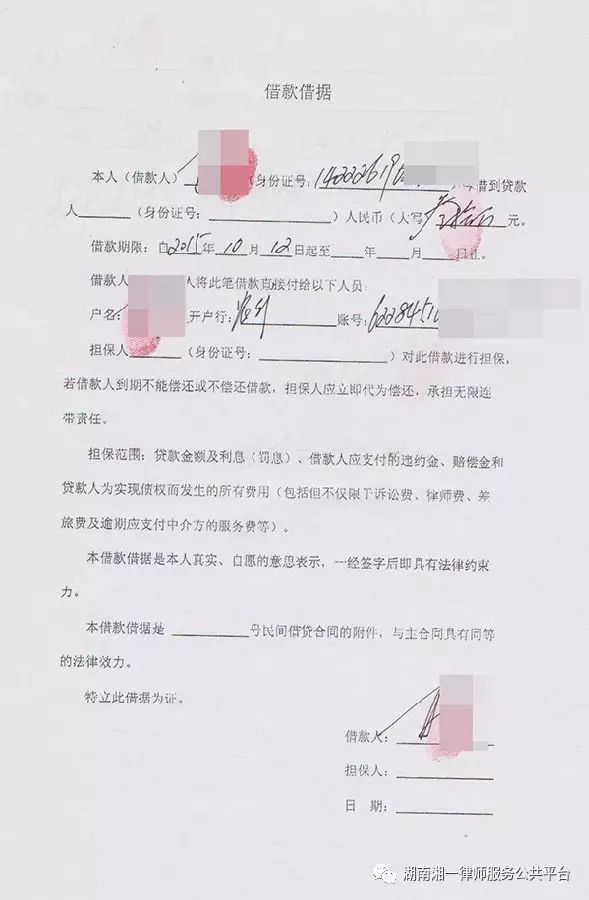 借款借据
本人（借款人）（身份证号：14222619 今借到贷款
人______（身份证号：____________）人民币（大写 元。
借款期限：自2015年10月12日起至____年____月____日止。
借款人 人将此笔借款直接付给以下人员：
户名： 开户行： 账号：6228451
担保人______（身份证号：____________）对此借款进行担保，
若借款人到期不能偿还或不偿还借款，担保人应立即代为偿还，承担无限连
带责任。
担保范围：贷款金额及利息（罚息）、借款人应支付的违约金、赔偿金和
贷款人为实现债权而发生的所有费用（包括但不仅限于诉讼费、律师费、差
旅费及逾期应支付中介方的服务费等）。
本借款借据是本人真实、自愿的意思表示，一经签字后即具有法律约束
力。
本借款借据是 ________号民间借贷合同的附件，与主合同具有同等
的法律效力。
特立此借据为证。
借款人：
担保人：
日 期：
湖南湘一律师服务公共平台